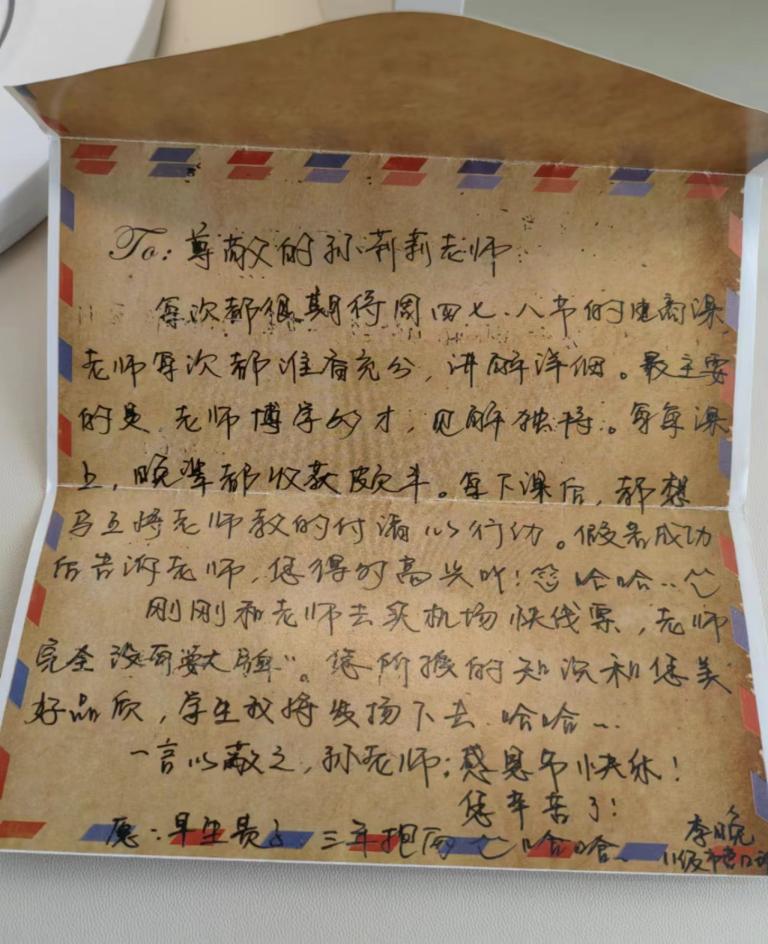 To: 尊敬的孙莉莉老师
每次都很期待周四七、八节的电商课
老师每次都准备充分，讲解详细。最主要
的是 老师博学多才，见解独特。每每课
上，晚辈都收获颇丰。每下课后，都想
马上将老师教的付诸以行动。假若成功
后告诉老师，您得多高兴吖！哈哈..
刚刚和老师去买机场快线票，老师
完全没有耍大牌"。您所授的知识和您美
好品质，学生我将发扬下去 哈哈...
一言以蔽之，孙老师：感恩节快乐！
您辛苦了！
愿：早生贵子 三年抱两 哈哈..
李晚
11级市营